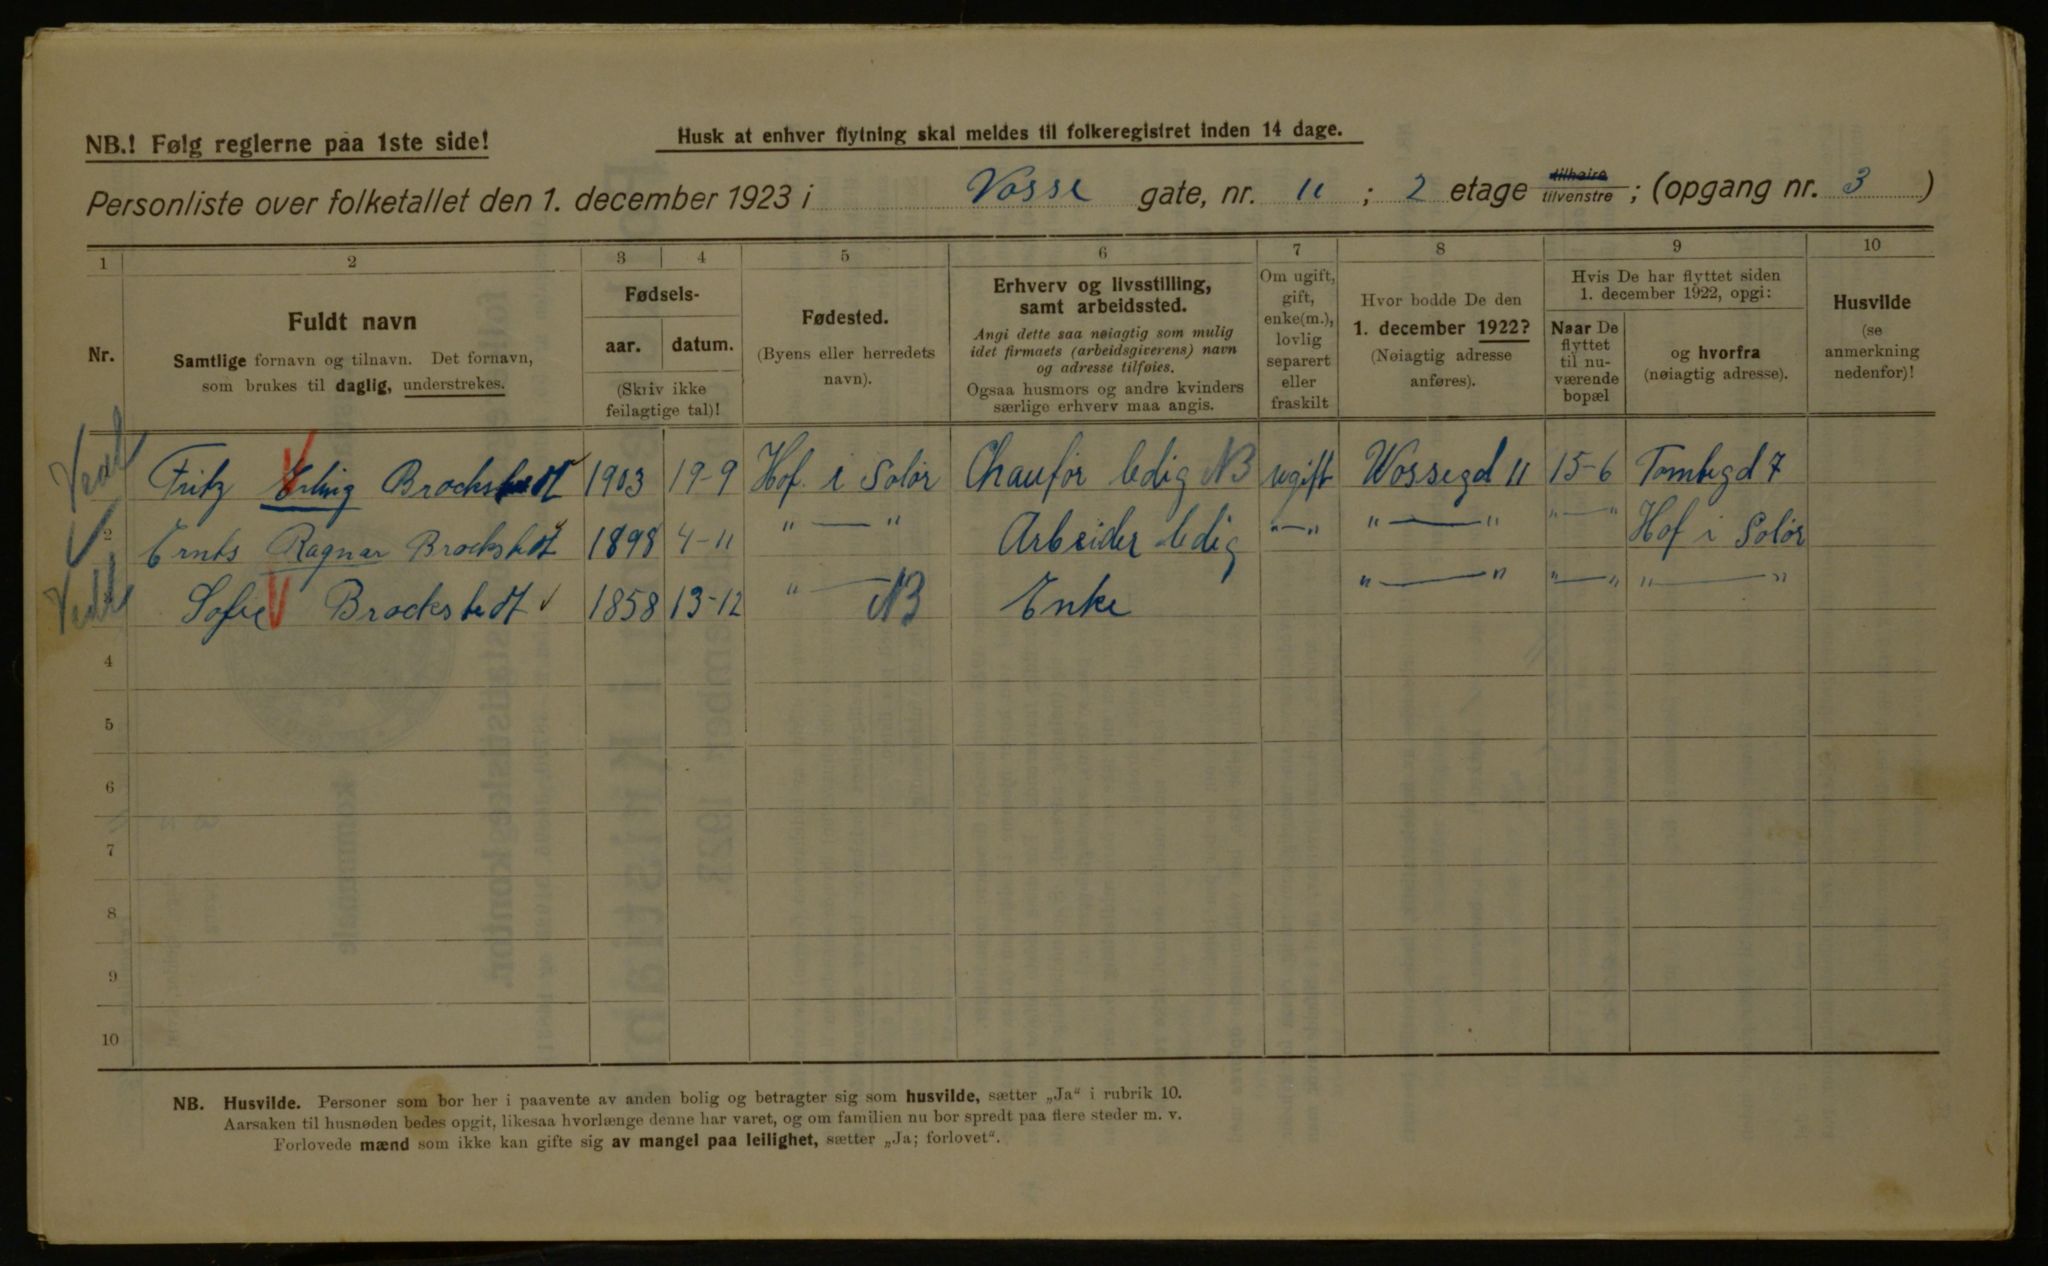 NB.! Følg reglerne paa 1ste side!
Husk at enhver flytning skal meldes til folkeregistret inden 14 dage.
Personliste over folketallet den 1. december 1923 i Vosse gate, nr. 11 ; 2 etage tilhøire/tilvenstre ; (opgang nr. 3 )
1 2 3 4 5 6 7 8 9 10
Nr.
Fuldt navn
Samtlige fornavn og tilnavn. Det fornavn,
som brukes til daglig, understrekes.
Fødsels-
aar. datum.
(Skriv ikke
feilagtige tal)!
Fødested.
(Byens eller herredets
navn).
Erhverv og livsstilling,
samt arbeidssted.
Angi dette saa nøiagtig som mulig
idet firmaets (arbeidsgiverens) navn
og adresse tilføies.
Ogsaa husmors og andre kvinders
særlige erhverv maa angis.
Om ugift,
gift,
enke(m.),
lovlig
separert
eller
fraskilt
Hvor bodde De den
1. december 1922?
(Nøiagtig adresse
anføres).
Hvis De har flyttet siden
1. december 1922, opgi:
Naar De
flyttet
til nu-
værende
bopæl
og hvorfra
(nøiagtig adresse).
Husvilde
(se
anmerkning
nedenfor)!
Fritz Erling Brockstedt 1903 19-9 Hof i Solør Chaufør ledig NB ugift Wossegd 11 15-6 Tomtegd 7
2 Ernts Ragnar Brockstedt 1898 4-11 " — " Arbeider ledig "—" "—" "—" Hof i Solør
Sofie Brockstedt 1858 13-12 " — NB Enke "—" "—" "—"
4
5
6
7
8
9
10
NB. Husvilde. Personer som bor her i paavente av anden bolig og betragter sig som husvilde, sætter „Ja“ i rubrik 10.
Aarsaken til husnøden bedes opgit, likesaa hvorlænge denne har varet, og om familien nu bor spredt paa flere steder m. v.
Forlovede mænd som ikke kan gifte sig av mangel paa leilighet, sætter „Ja; forlovet“.